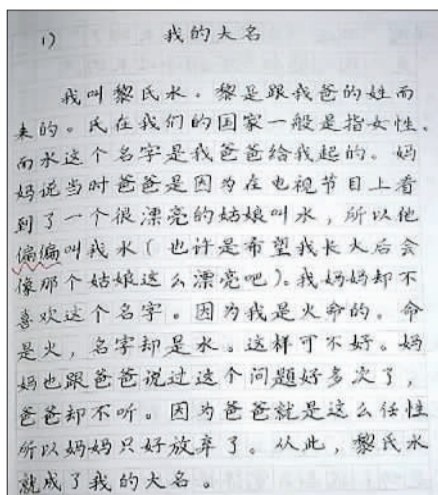 1) 我的大名
我叫黎氏水。黎是跟我爸的姓而
来的。氏在我们的国家一般是指女性。
而水这个名字是我爸爸给我起的。妈
妈说当时爸爸是因为在电视节目上看
到了一个很漂亮的姑娘叫水，所以他
偏偏叫我水(也许是希望我长大后会
像那个姑娘这么漂亮吧)。我妈妈却不
喜欢这个名字。因为我是火命的。命
是火，名字却是水。这样可不好。妈
妈也跟爸爸说过这个问题好多次了，
爸爸却不听。因为爸爸就是这么任性
所以妈妈只好放弃了。从此，黎氏水
就成了我的大名。